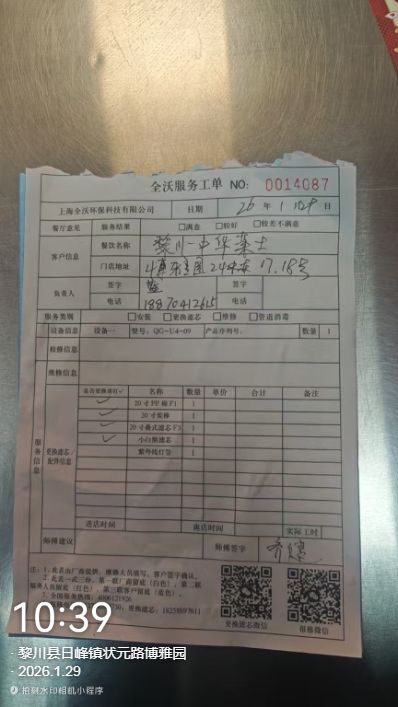 全沃服务工单 NO: 0014087
上海全沃环保科技有限公司 日期 26 年 1 月 29 日
餐厅意见 服务结果 □满意 □较好 □较差不满意
客户信息 餐饮名称 黎川-中华
门店地址 17.18号
负责人 签字
电话 18870412615 电话
服务类别 □安装 □更换滤芯 □维修 □管道消毒
设备信息 设备一 型号: QG-U4-09 产品序列号: 数量 1
检修信息
维修信息
服务信息
更换滤芯/配件信息
是否更换请打✓ 名称 数量 单价 合计 备注
✓ 20寸PP棉F1 1
✓ 20寸炭棒 1
✓ 20寸叠式滤芯F3 1
✓ 小白换滤芯 1
紫外线灯管 1
进店时间 离店时间 实际工时
师傅建议 师傅签字
注: 1. 此表由厂商提供, 维修人员填写, 客户签字确认。
2. 此表一式三份, 第一联厂商留底(白色), 第二联
服务人员留底(红色), 第三联客户留底(蓝色)。
更换滤芯微信 报修微信
10:39
· 黎川县日峰镇状元路博雅园
· 2026.1.29
抢刻水印相机小程序